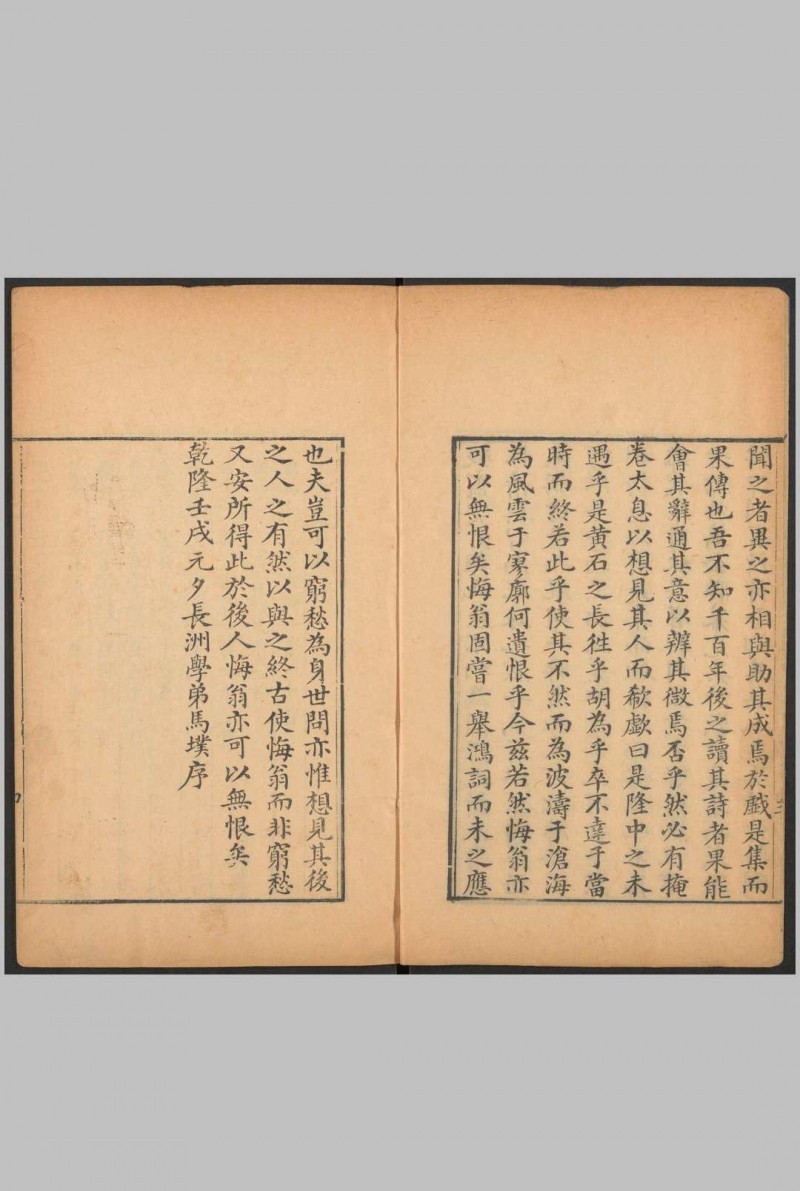 聞之者異之亦相與助其成焉於戲是集而
果傳也吾不知千百年後之讀其詩者果能
會其辭通其意以辨其微焉否乎然必有掩
卷太息以想見其人而欷歔曰是隆中之未
遇乎是黄石之長徃乎胡為乎卒不達于當
時而終若此乎使其不然而為波濤于滄海
為風雲于寥廓何遺恨乎今兹若然悔翁亦
可以無恨矣悔翁固嘗一舉鴻詞而未之應
也夫豈可以窮愁為身世問亦惟想見其後
之人之有然以與之終古使悔翁而非窮愁
又安所得此於後人悔翁亦可以無恨矣
乾隆壬戌元夕長洲學弟馬墣序